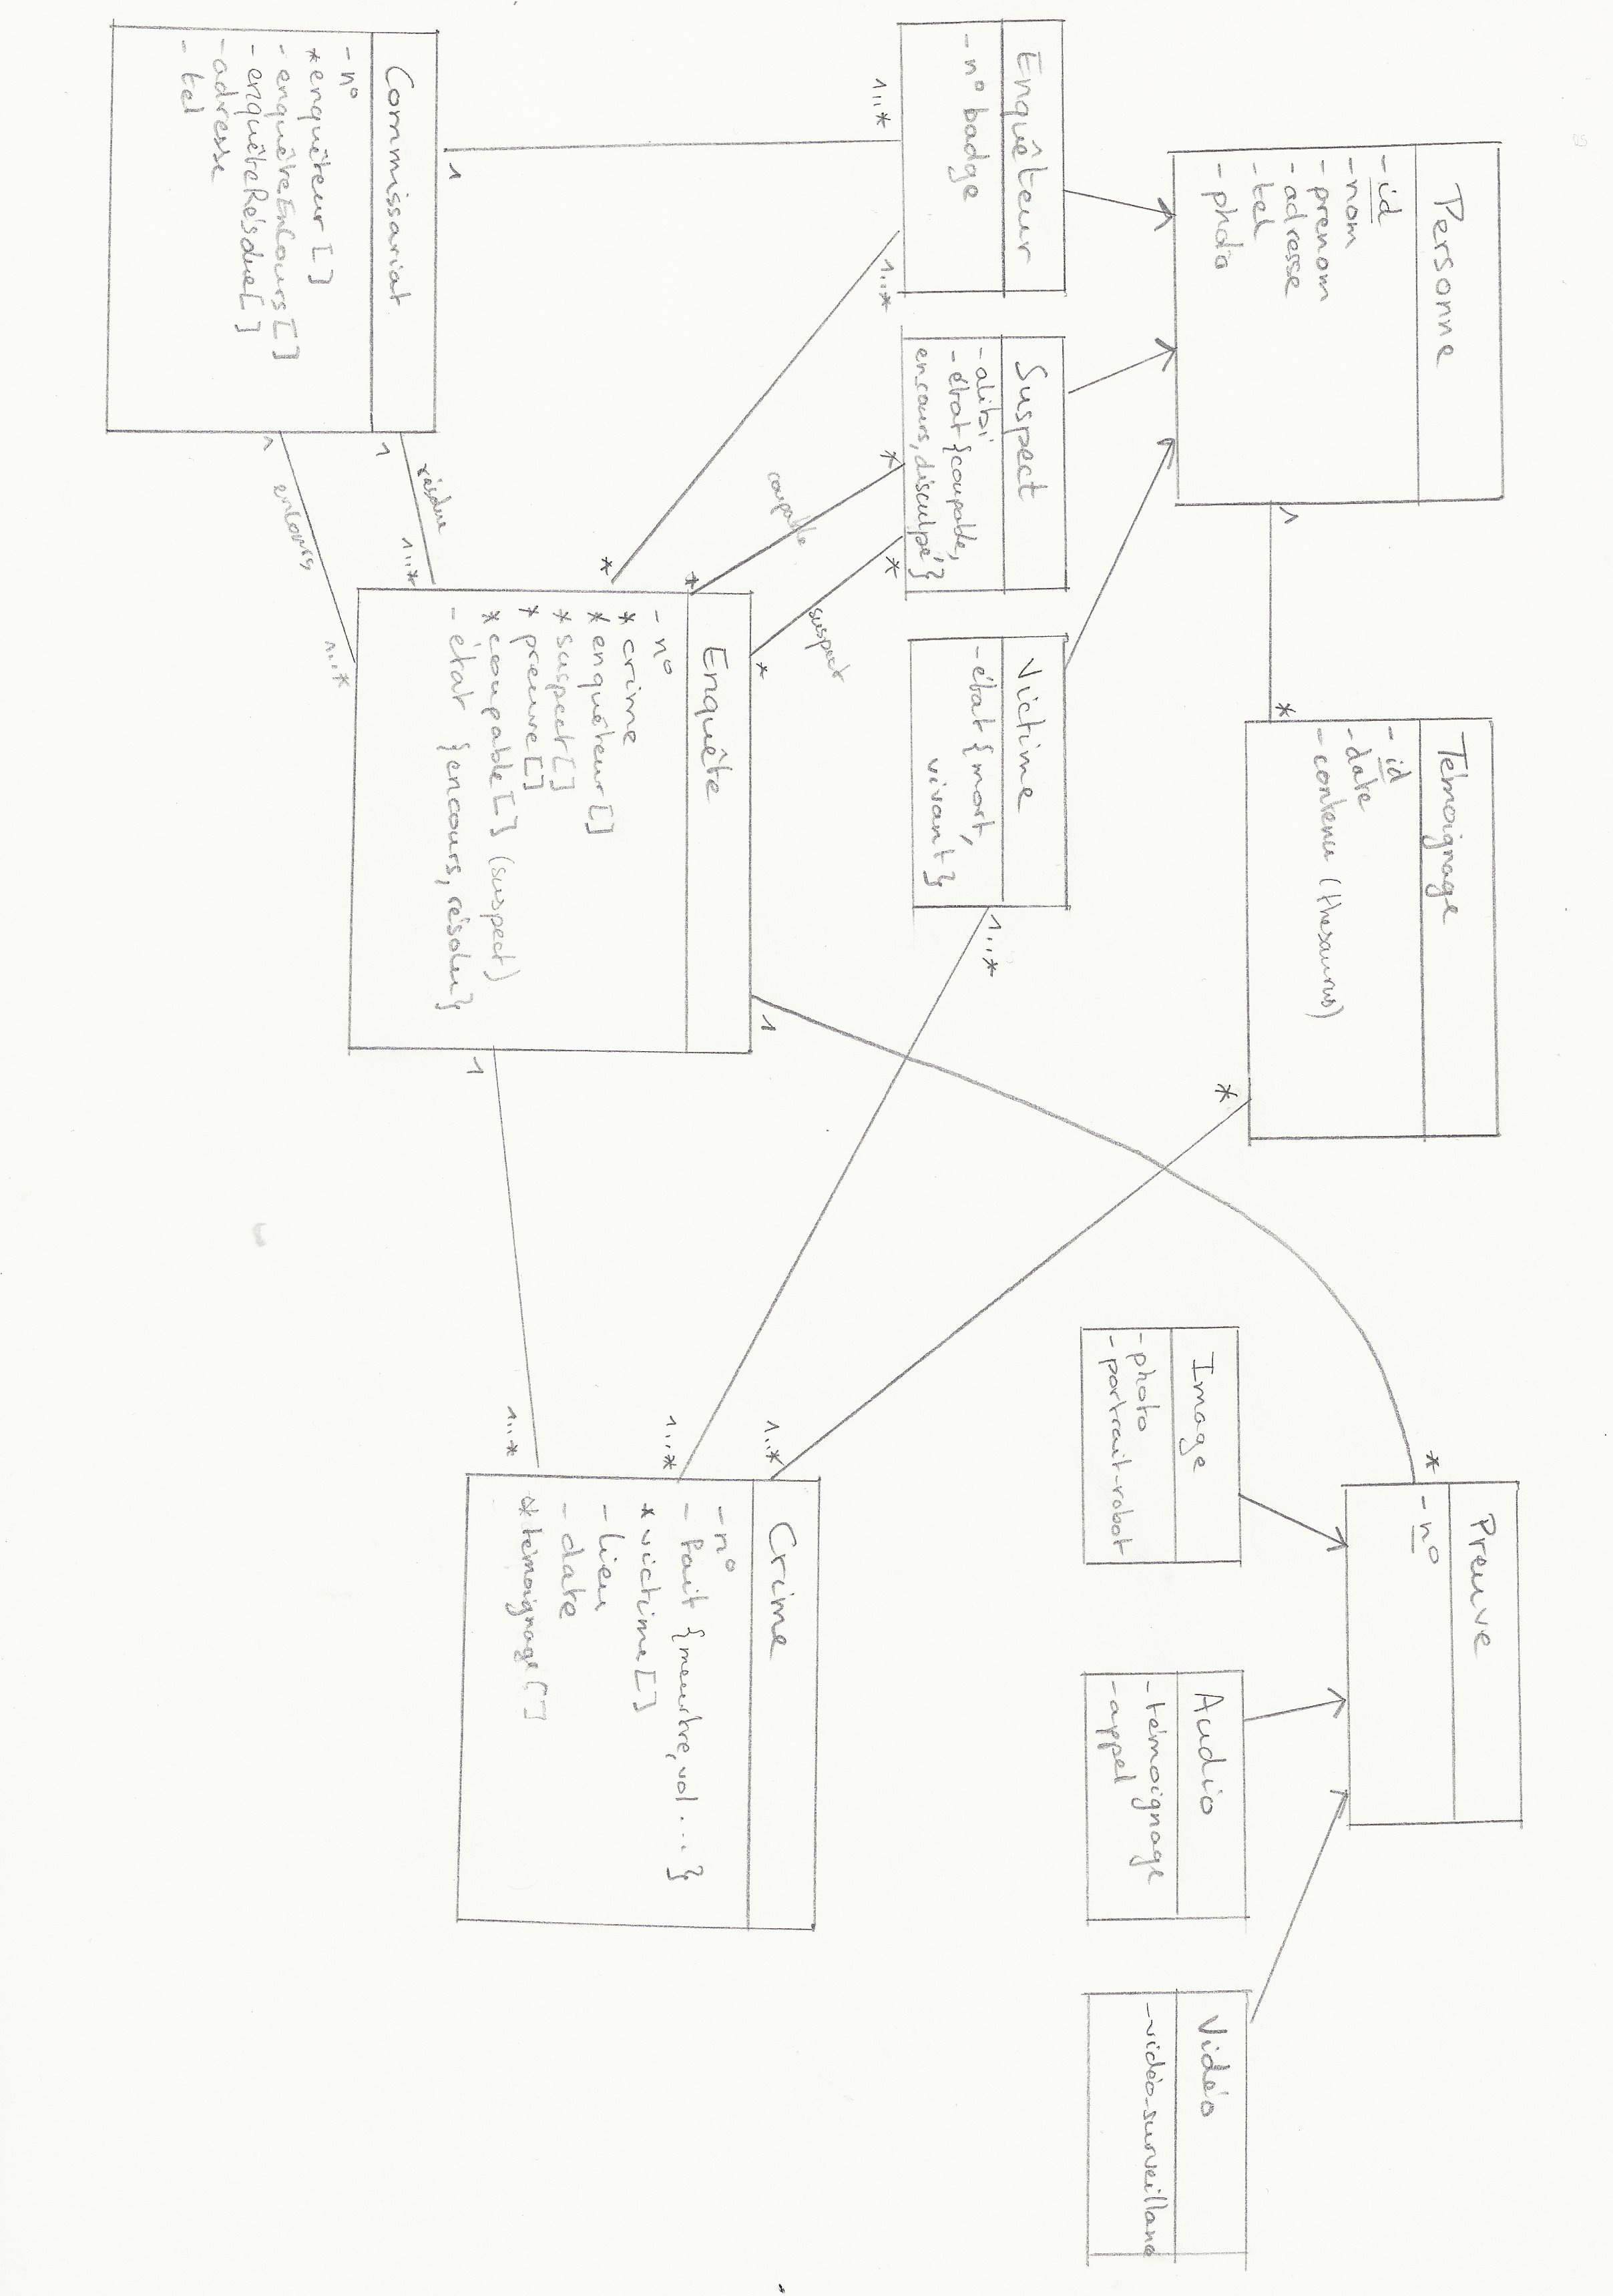 Personne
- id
- nom
- prenom
- adresse
- tel
- photo
1
*
Témoignage
- id
- date
- contenu (thesaurus)
*
Preuve
- n°
*
Image
- photo
- portrait-robot
Audio
- témoignage
- appel
Vidéo
- vidéo-surveillance
Enquêteur
- n° badge
1..*
1..*
Suspect
- alibi
- état {coupable,
en cours, disculpé}
*
*
Victime
- état {mort,
vivant}
1..*
coupable
suspect
*
*
*
1
Enquête
- n°
* crime
* enquêteur []
* suspect []
* preuve []
* coupable [] (suspect)
- état {encours, résolu}
1
Crime
- n°
- Fait {meurtre, vol ...}
* victime []
- lieu
- date
* témoignage []
1..*
1..*
1..*
1
Commissariat
- n°
* enquêteur []
- enquêteEnCours []
- enquêteRésolue []
- adresse
- tel
résolue
1
1..*
enCours
1
1..*